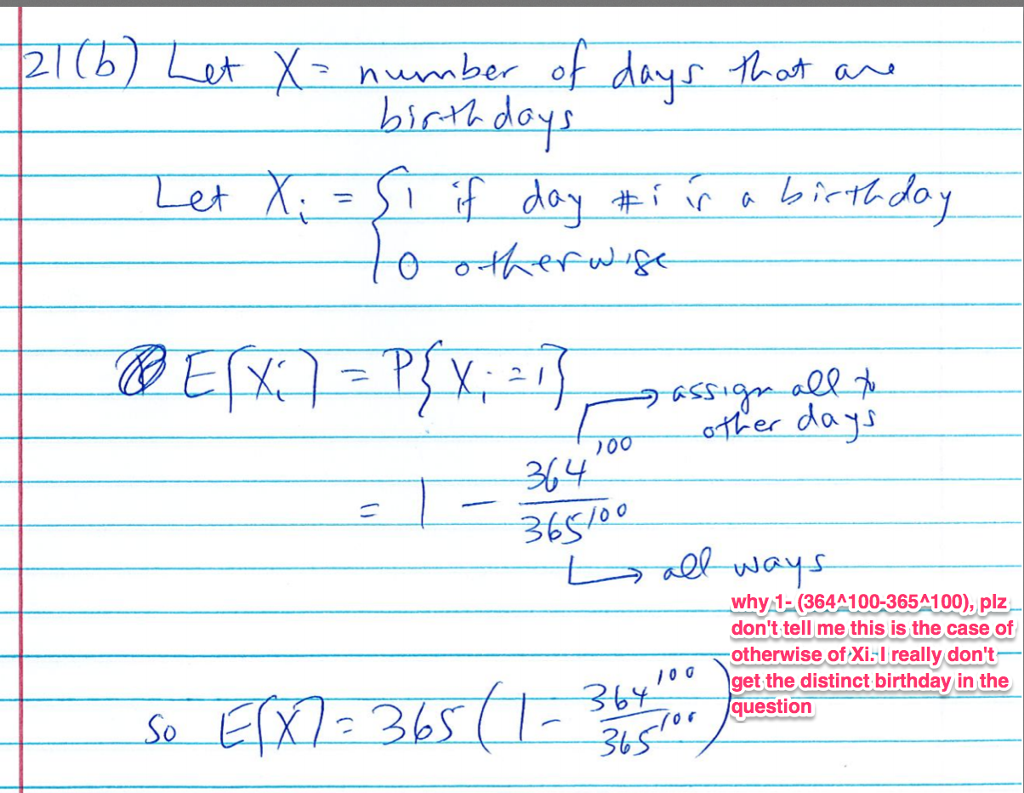 21(b) Let X = number of days that are
birthdays
Let Xi = { 1 if day #i is a birthday
0 otherwise
E[Xi] = P{Xi = 1}
→ assign all to
other days
= 1 - 364^100 / 365^100
→ all ways
why 1- (364^100-365^100), plz
don't tell me this is the case of
otherwise of Xi. I really don't
get the distinct birthday in the
question
So E[X] = 365 (1 - 364^100 / 365^100)